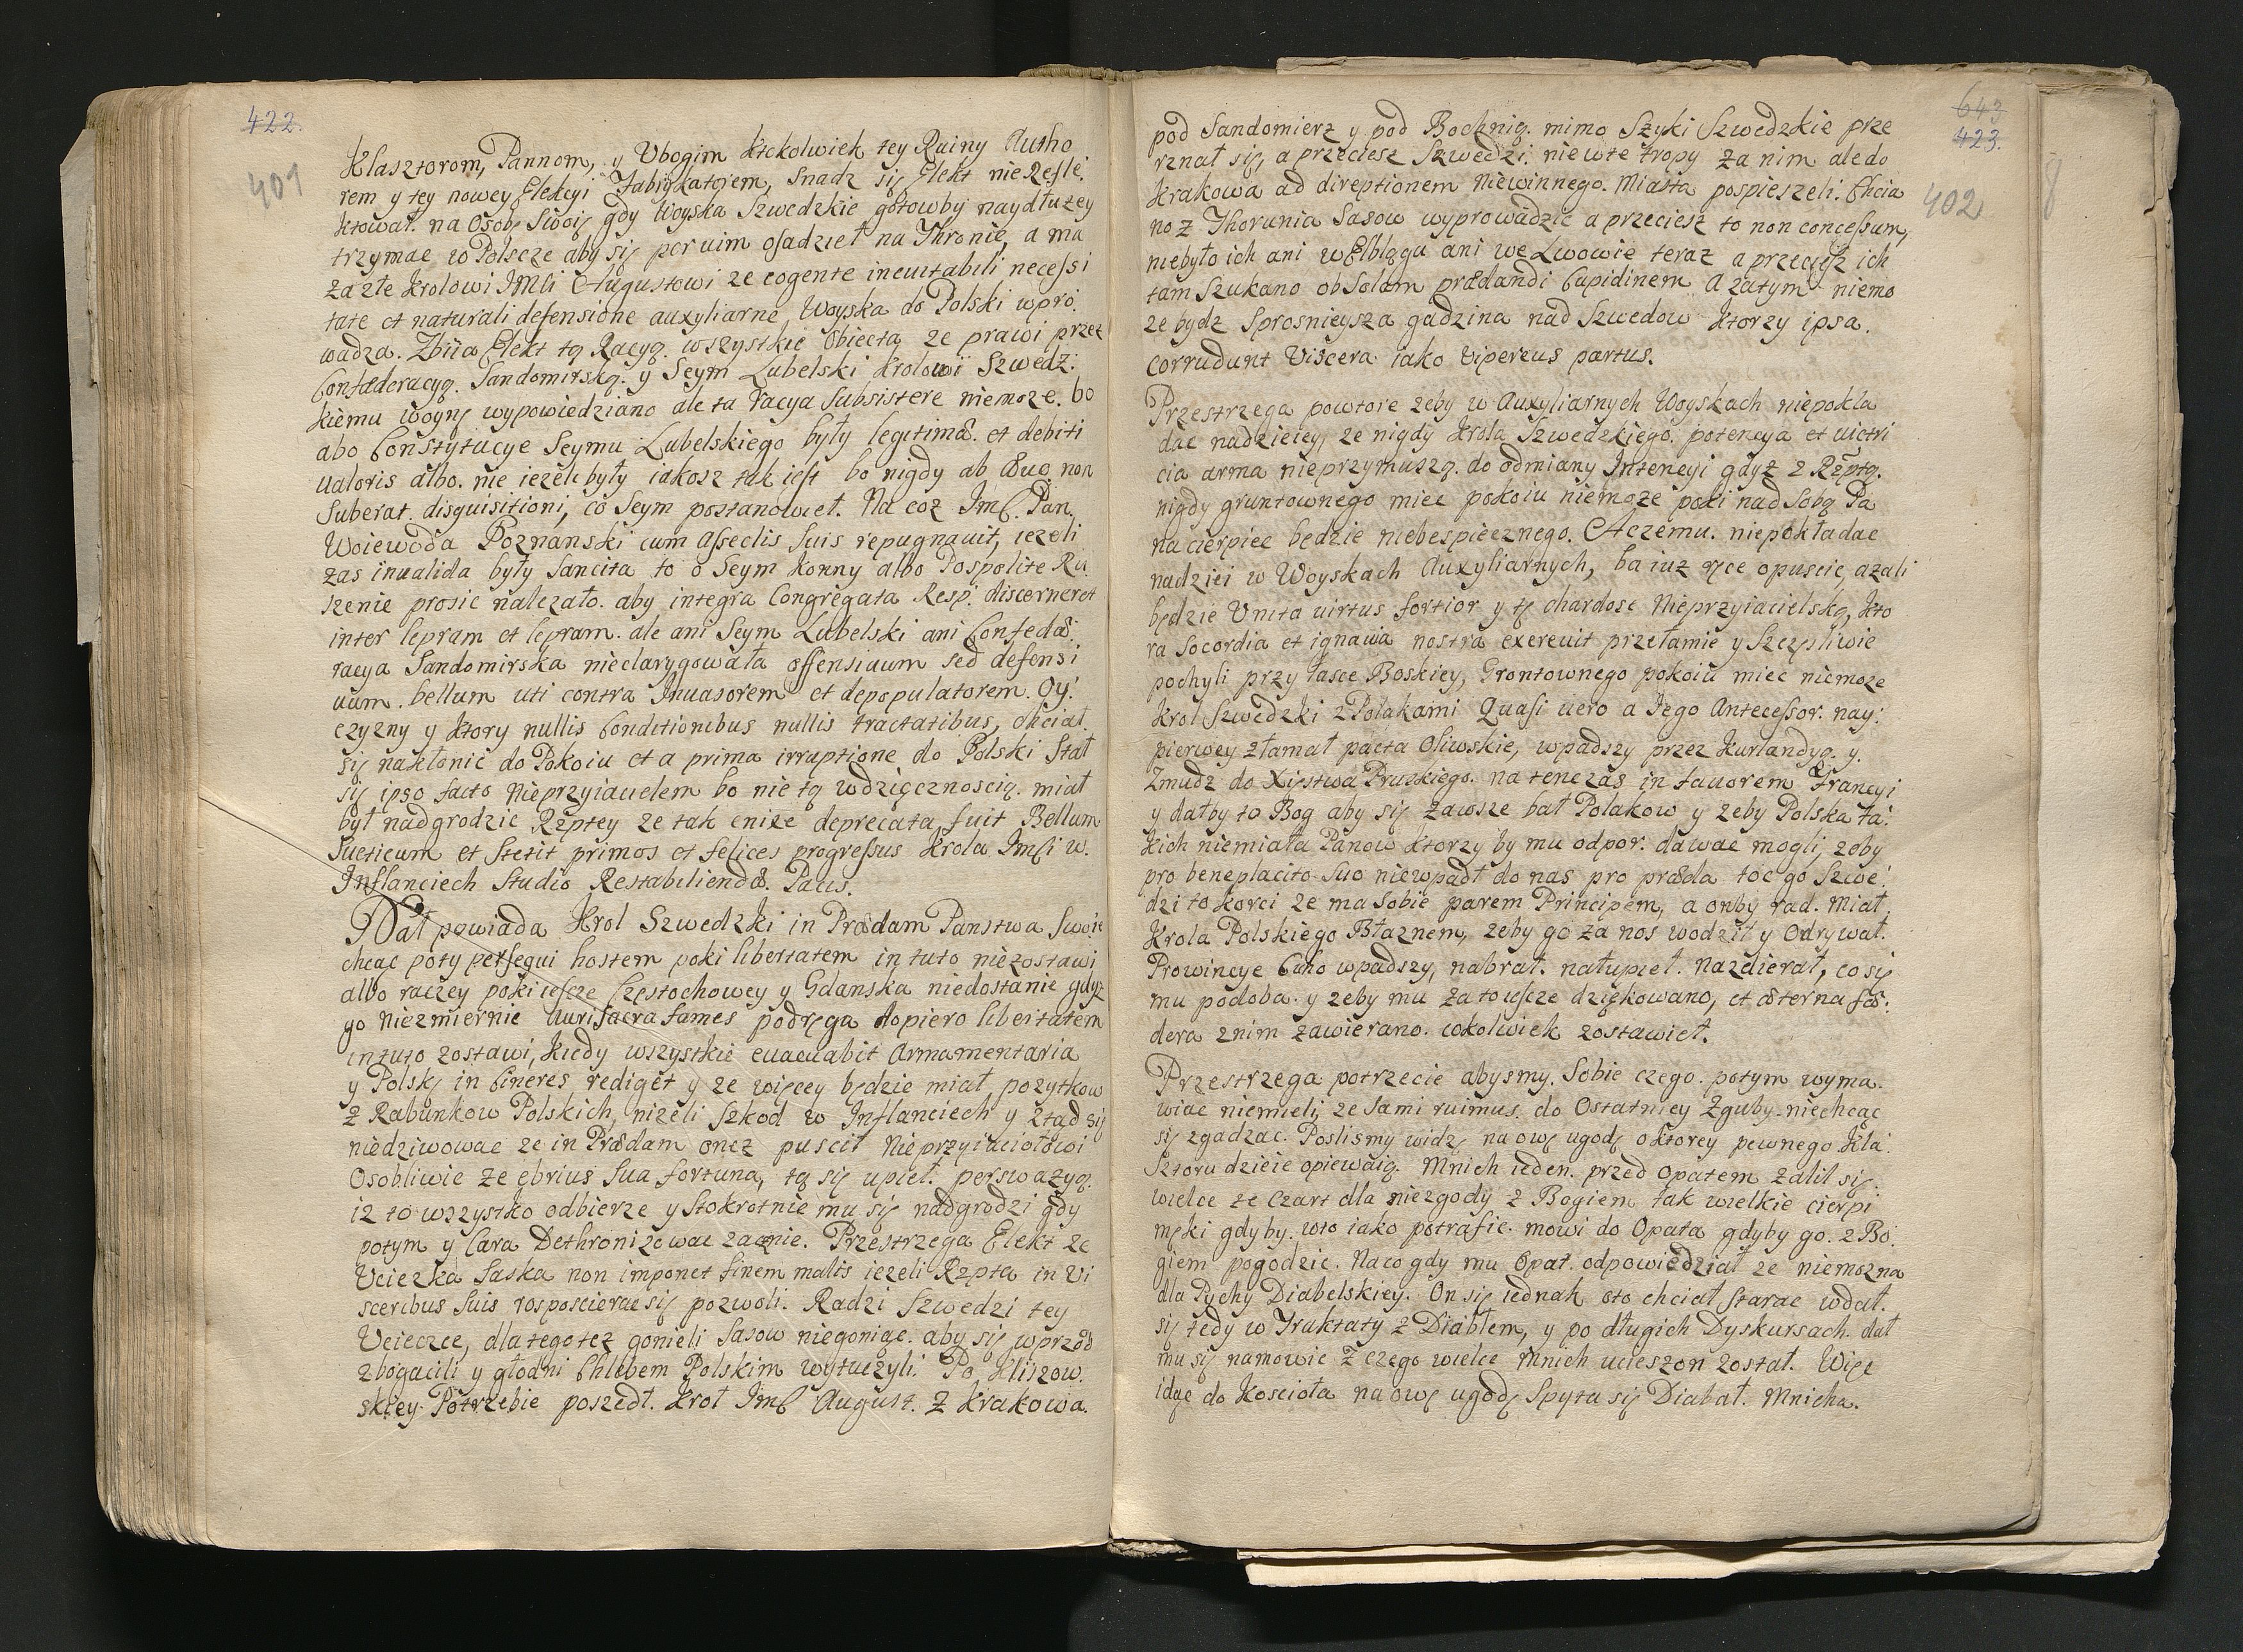 422.
401
Klasztorom, Pannom, y Vbogim ktokolwiek tey Ruiny Autho
rem y tey nowey Elekcyi Fabrykatorem, snadz się Elekt nierefle.
ktował. na Osobę Swoię gdy Woyska Szwedzkie gotowby naydłuzey
trzymac w Polscze aby się per uim osadzieł na Thronie, a ma
zazłe Krolowi JMśi Augustowi ze cogente ineuitabili necessi
tate et naturali defensione auxyliarne, Woyska do Polski wpro.
wadza. Zbiia Elekt tą Racyą. wszystkie Obiecta ze prawi przez
Confæderacyą. Sandomirską. y Seym Lubelski Krolowi Szwedz:
kiemu woynę wypowiedziano ale ta racya Subsistere niemoze. bo
abo Constytucye Seymu Lubelskiego były legitimæ. et debiti
ualoris albo. nie iezeli były iakosz tak iest bo nigdy ab æuo non
suberat. disquisitioni, co Seym postanowieł. Na coz Imć. Pan.
Woiewoda Poznanski cum asseclis suis repugnauit, iezeli
zas inualida były Sancita to o Seym Konny albo Pospolite Ru
szenie prosic nalezało. aby integra Congregata Resp: discerneret
inter lepram et lepram. ale ani Seym Lubelski ani Confedæ:
racya Sandomirska nieclarygowała offensiuum sed defensi
uum. bellum uti contra Inuasorem et depopulatorem. Oy:
czyzny y ktory nullis Conditionibus nullis tractatibus, chciał.
się nakłonic do Pokoiu et a prima irruptione do Polski stał
się ipso facto Nieprzyiacielem bo nie tą wdzięcznoscią. miał
był nadgrodzic Rzptey ze tak enixe deprecata fuit Bellum
Sueticum et stetit primos et felices progressus Krola Imśi w.
Inflanciech studio Restabiliendæ. Pacis.
Dał powiada Krol Szwedzki in Prædam Panstwa Swoie
chcąc poty persequi hostem poki libertatem in tuto niezostawi
albo raczey poki ieszcze Częstochowey y Gdanska niedostanie gdyz
go niezmiernie Auri sacra fames podzęga dopiero libertatem
in tuto zostawi, kiedy wszystkie euacuabit Armamentaria
y Polskę in Cineres rediget y ze więcey będzie miał pozytkow
z Rabunkow Polskich, nizeli szkod w Inflanciech y ztąd się
niedziwowac ze in Prædam onez puscił Nieprzyiaciołowi
Osobliwie ze ebrius sua fortuna, tą się upieł. perswazyą.
iz to wszystko odbierze y stokrotnie mu się nadgrodzi gdy
potym y Cara Dethronizowac zacznie. Przestrzega Elekt ze
Ucieczka Saska non imponet finem malis iezeli Rzpta in Vi
sceribus suis rosposcierac się pozwoli. Radzi Szwedzi tey
Ucieczce, dla tego tez gonieli Sasow niegoniąc. aby się wprzod
zbogacili y głodni Chlebem Polskim wytuczyli. Po Kliszow.
skiey Potrzebie poszedł. Krol Imć August. z Krakowa.
643
423.
402
pod Sandomierz y pod Bochnią. mimo Szyki Szwedzkie prze
rznał się, a przeciesz Szwedzi. niewte tropy za nim ale do
Krakowa ad direptionem Niewinnego. Miasta pospieszeli. Chcia
no z Thorunia Sasow wyprowadzic a przeciesz to non concessum,
niebyło ich ani w Elblągu ani we Lwowie teraz a przeciesz ich
tam szukano ob Solam prædandi Cupidinem A zatym niemo
ze bydz Sprosnieysza gadzina nad Szwedow ktorzy ipsa.
corrudunt Viscera iako vipereus partus.
Przestrzega powtore zeby w Auxyliarnych Woyskach niepokla
dac nadzieiey, ze nigdy Krola Szwedzkiego. potencya et uictri
cia arma nieprzymuszą. do odmiany Intencyi gdyz z Rzptą.
nigdy gruntownego miec pokoiu niemoze poki nad sobą Pa
na cierpiec bedzie niebespiecznego. Aczemu. niepokładac
nadziei w Woyskach Auxyliarnych, ba iuz ręce opuscic, azali
będzie Vnita uirtus fortior y tę chardosc Nieprzyiacielską, kto
ra Socordia et ignauia nostra exereuit przełamie y Szczęśliwie
pochyli przy łasce Boskiey, Grontownego pokoiu miec niemoze
Krol Szwedzki z Polakami Quasi uero a Iego Antecessor. nay:
pierwey złamał pacta Oliwskie, wpadszy przez Kurlandyą. y.
Zmudz do Xięstwa Pruzkiego. na tenczas in fauorem Francyi
y dałby to Bog aby się zawsze bał Polakow y zeby Polska ta:
kich niemiała Panow ktorzy by mu odpor. dawac mogli, zeby
pro beneplacito suo niewpadł do nas pro præda toc go Szwe:
dzi to korci ze ma sobie parem Principem, a onby rad. miał
Krola Polskiego Błaznem, zeby go za nos wodził y Odrywał.
Prowincye Cało wpadszy, nabrał. nałupieł. nazdierał, co się
mu podoba. y zeby mu za to ieszcze dziękowano, et æterna fæ:
dera z nim zawierano. cokolwiek zostawieł.
Przestrzega potrzecie abysmy. Sobie czego. potym wyma.
wiac niemieli, ze Sami ruimus. do Ostatniey Zguby. niechcąc
się zgadzac. Poslismy widzę na owę ugodę o ktorey pewnego Kla:
sztoru dzieie opiewaią. Mnich ieden. przed Opatem zalił się.
wielce ze Czart dla niezgody z Bogiem tak wielkie cierpi
męki gdyby. wto iako potrafic. mowi do Opata gdyby go. z Bo:
giem pogodzic. Naco gdy mu Opat. odpowiedział ze niemozna
dla Pychy Diabelskiey. On się iednak oto chciał starac wdał.
się tedy w Traktaty z Diabłem, y po długich Dyskursach. dał
mu się namowic z czego wielce Mnich ucieszon został. Więc
idąc do Koscioła na owę ugodę Spyta się Diabał. Mnicha.